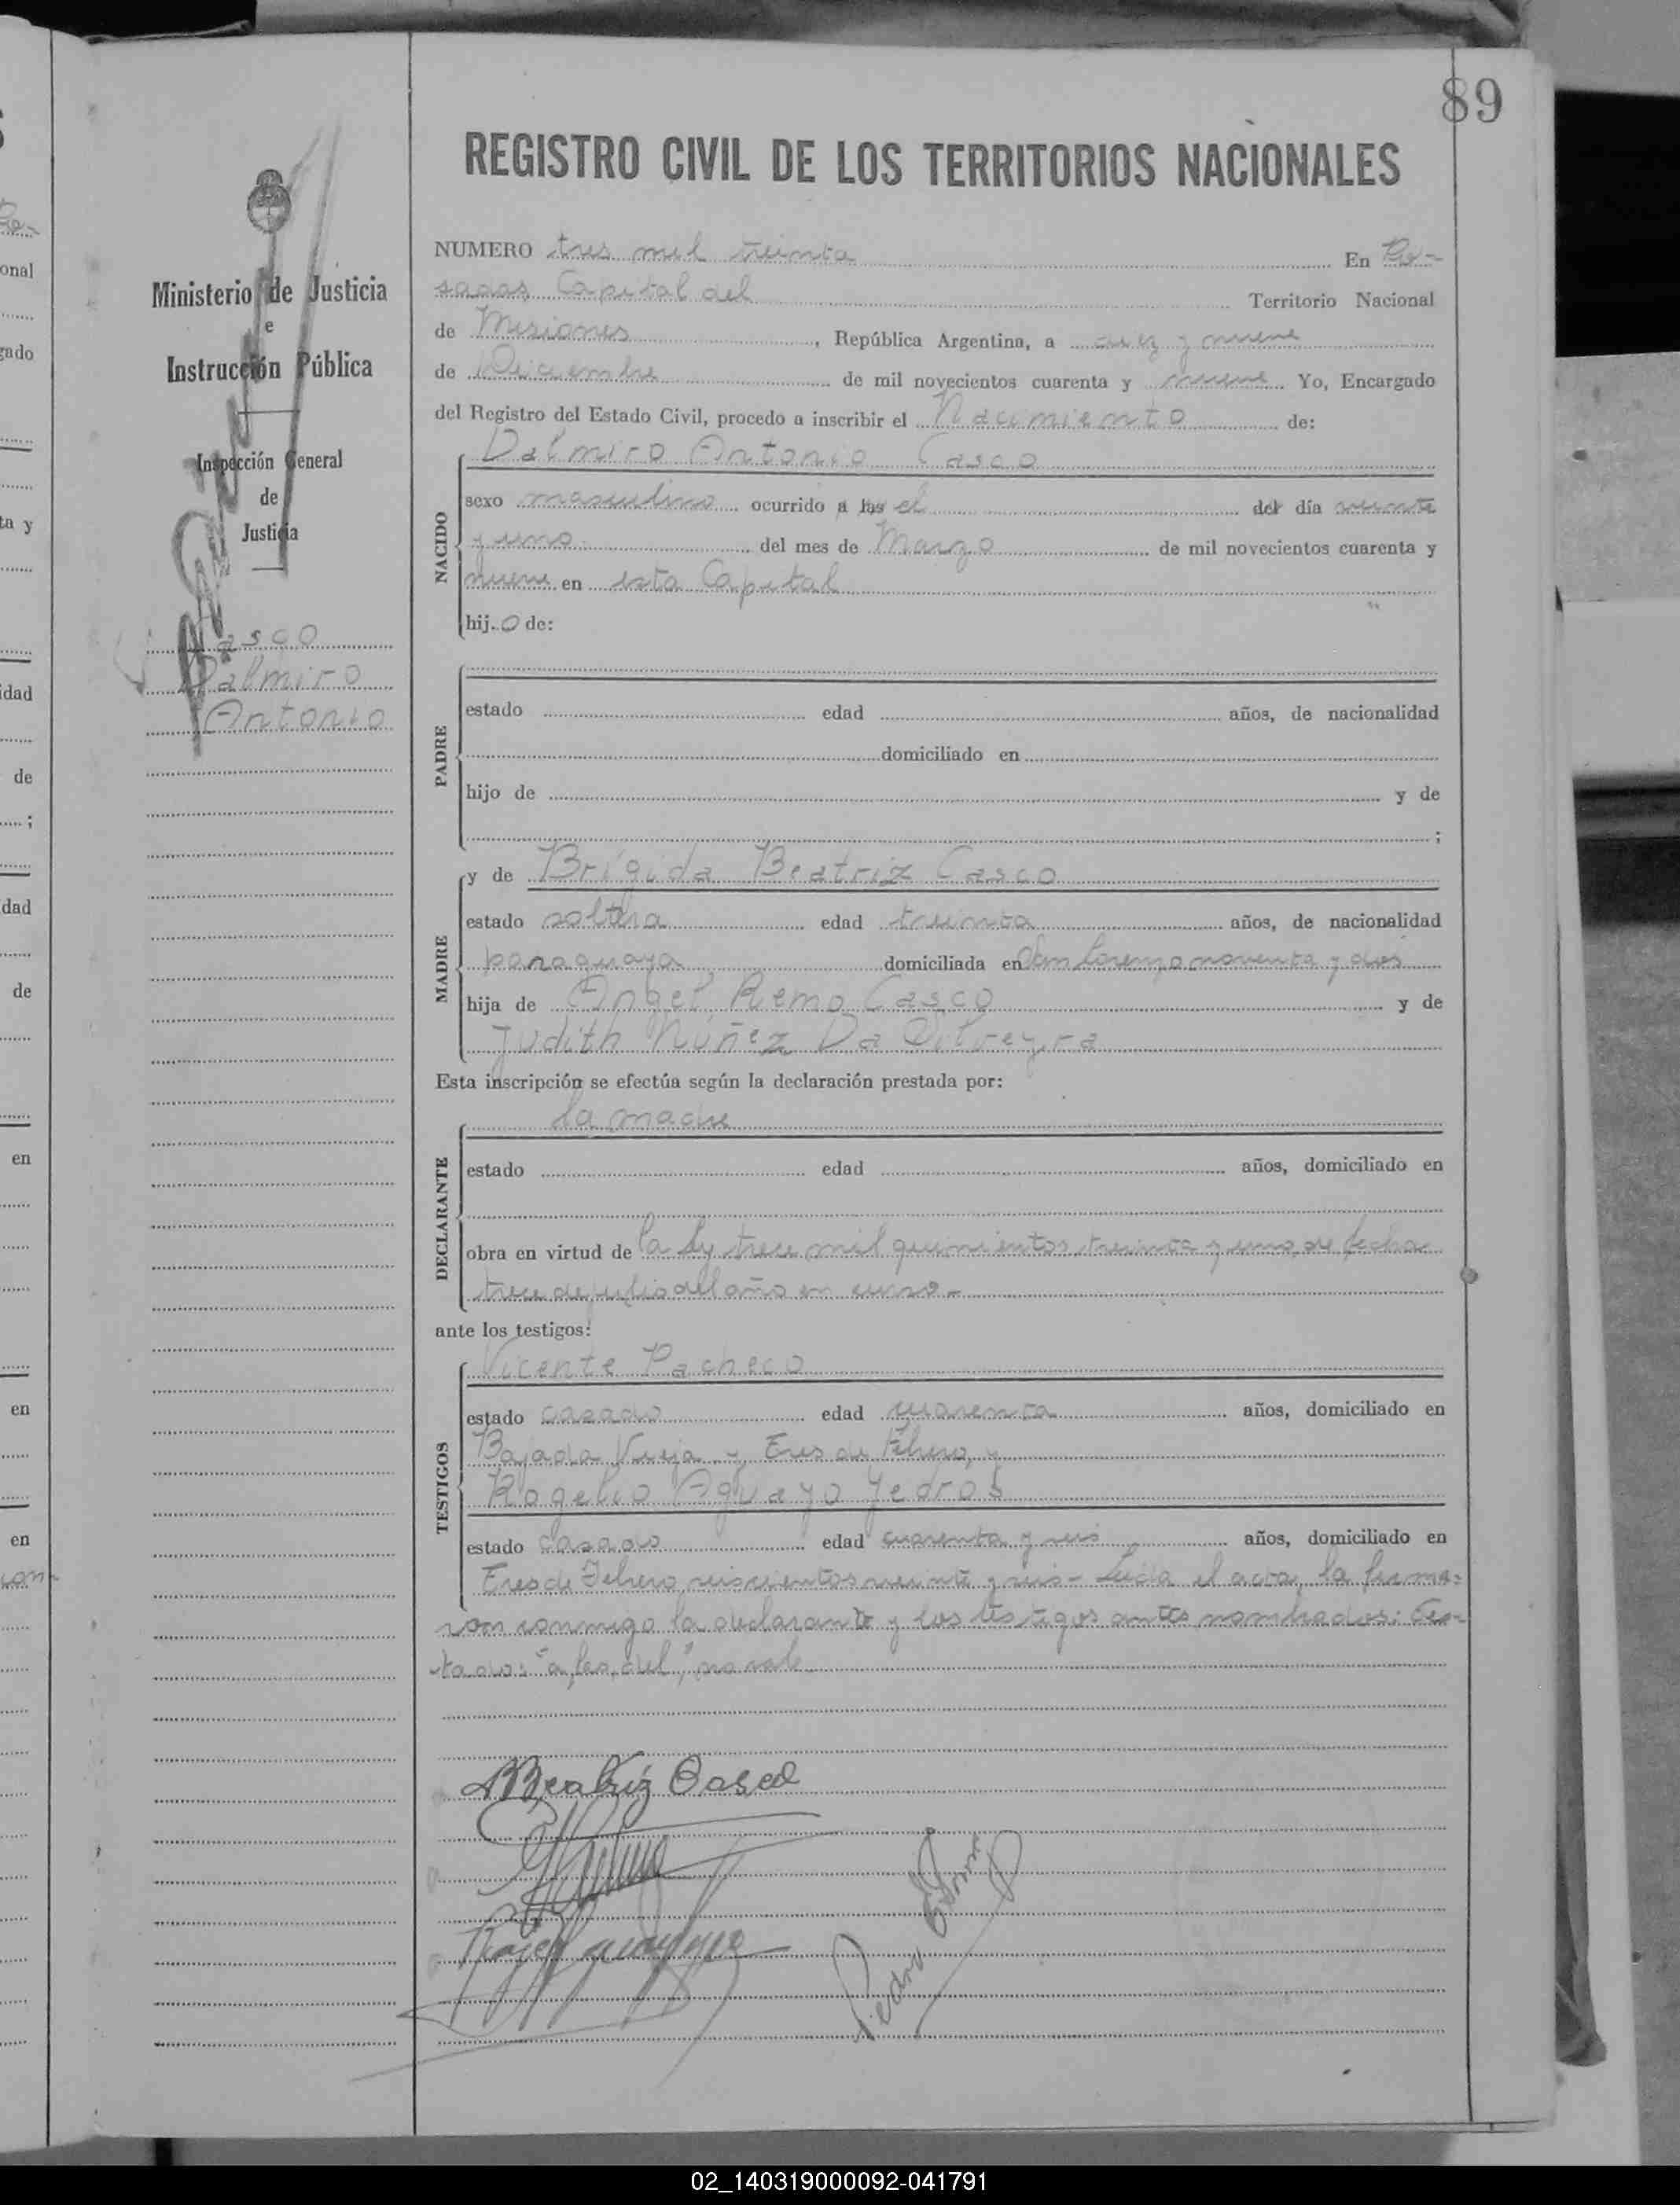 89
REGISTRO CIVIL DE LOS TERRITORIOS NACIONALES
Ministerio de Justicia
e
Instrucción Pública
Inspección General
de
Justicia
Casco
Dalmiro
Antonio
NUMERO tres mil treinta En Po-
sadas Capital del Territorio Nacional
de Misiones, República Argentina, a diez y nueve
de Diciembre de mil novecientos cuarenta y nueve Yo, Encargado
del Registro del Estado Civil, procedo a inscribir el Nacimiento de:
NACIDO
Dalmiro Antonio Casco
sexo masculino ocurrido a las el del día veinte
y uno del mes de Marzo de mil novecientos cuarenta y
nueve en esta Capital
hijo de:
PADRE
estado edad años, de nacionalidad
domiciliado en
hijo de y de
;
MADRE
y de Brígida Beatriz Casco
estado soltera edad treinta años, de nacionalidad
paraguaya domiciliada en San Lorenzo noventa y dos
hija de Angel Remo Casco y de
Judith Núñez Da Silveyra
Esta inscripción se efectúa según la declaración prestada por:
DECLARANTE
la madre
estado edad años, domiciliado en
obra en virtud de la ley trece mil quinientos treinta y uno, de fecha
trece de julio del año en curso.-
ante los testigos:
TESTIGOS
Vicente Pacheco
estado casado edad cuarenta años, domiciliado en
Bajada Vieja y Tres de Febrero, y
Rogelio Aguayo Yedros
estado casado edad cuarenta y seis años, domiciliado en
Tres de Febrero seiscientos veinte y seis - Leída el acta, la firma=
ron conmigo la declarante y los testigos antes nombrados: Tes-
tado: "a, las, del," no vale
BBeatriz Casco
Pedro
02_140319000092-041791